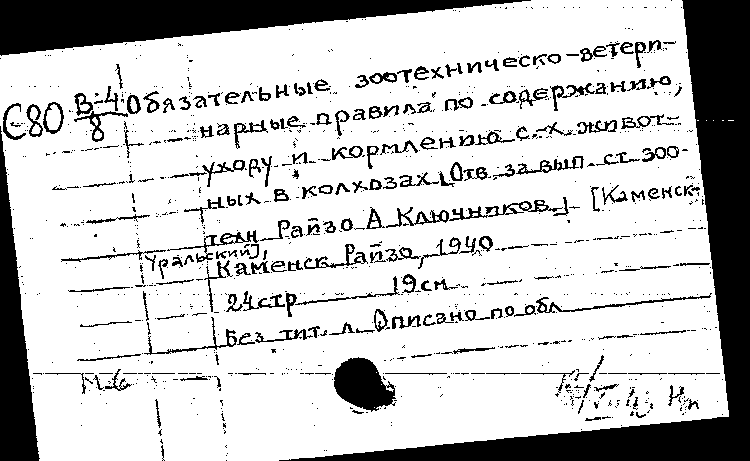 Є80 В-4/8 Обязательные зоотехническо-ветери-
нарные правила по содержанию,
уходу и кормлению с.-х. живот-
ных в колхозах [Отв. за вып. ст. зоо-
техн. Райзо А Ключников.] [Каменск-
Уральский],
Каменск. Райзо, 1940
24 стр 19 см
Без тит. л. Описано по обл
М-6